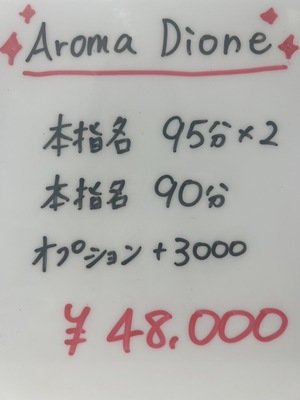 Aroma Dione
本指名 95分×2
本指名 90分
オプション +3000
¥ 48.000